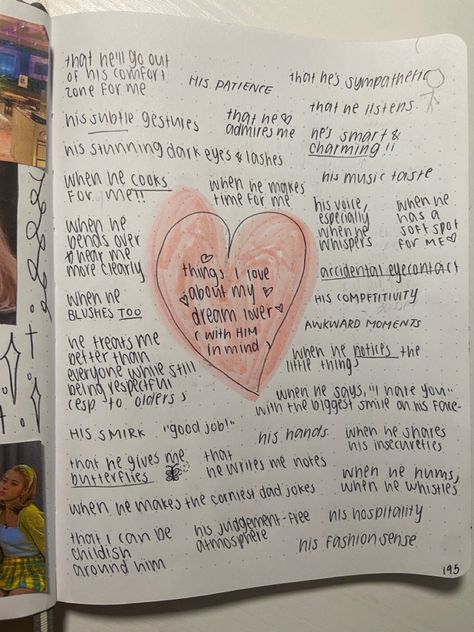 that he'll go out
of his comfort
zone for me
HIS PATIENCE
that he's sympathetic
his subtle gestures
that he
admires me
that he listens.
he's smart &
charming!!
his stunning dark eyes & lashes
when he cooks
for me!!
when he makes
time for me
his music taste
his voice,
especially
when he
whispers
when he
has a
soft spot
for me
when he
bends over
to hear me
more clearly
accidental eyecontact
things I love
about my
dream lover
(with HIM
in mind)
HIS COMPETITIVITY
when he
BLUSHES TOO
AWKWARD MOMENTS
he treats me
better than
everyone while still
being respectful
(esp. to olders)
when he notices the
little things
when he says, "I hate you"
with the biggest smile on his face-
HIS SMIRK
"good job!"
his hands
when he shares
his insecureties
that he gives me
butterflies
that
he writes me notes
when he hums,
when he whistles
when he makes the corniest dad jokes
that I can be
childish
around him
his judgement-free
atmosphere
his hospitality
his fashion sense
195